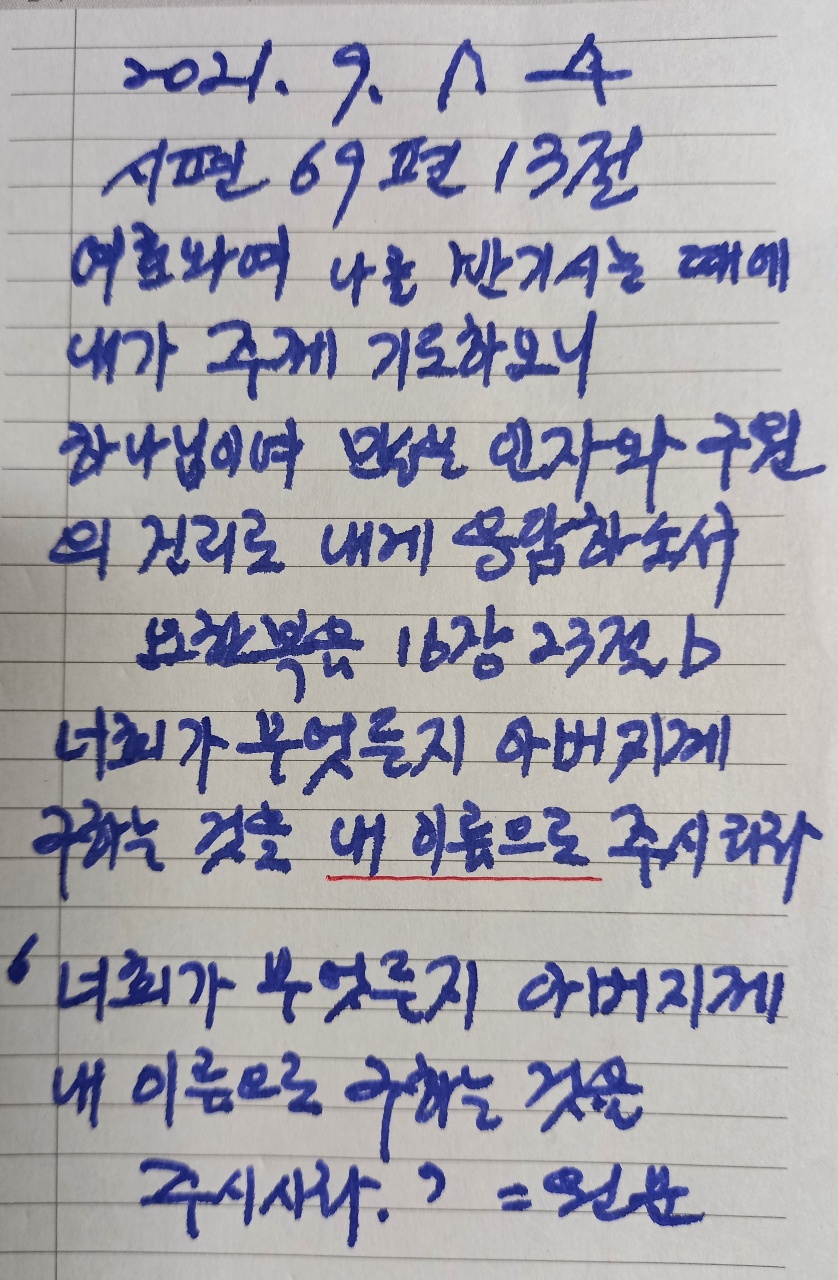 2021. 9. 1 수
시편 69편 13절
여호와여 나를 반기시는 때에
내가 주께 기도하오니
하나님이여 많은 인자와 구원
의 진리로 내게 응답하소서
요한복음 16장 23절 b
너희가 무엇든지 아버지께
구하는 것을 내 이름으로 주시리라
‘너희가 무엇든지 아버지께
내 이름으로 구하는 것을
주시리라.’ = 원문